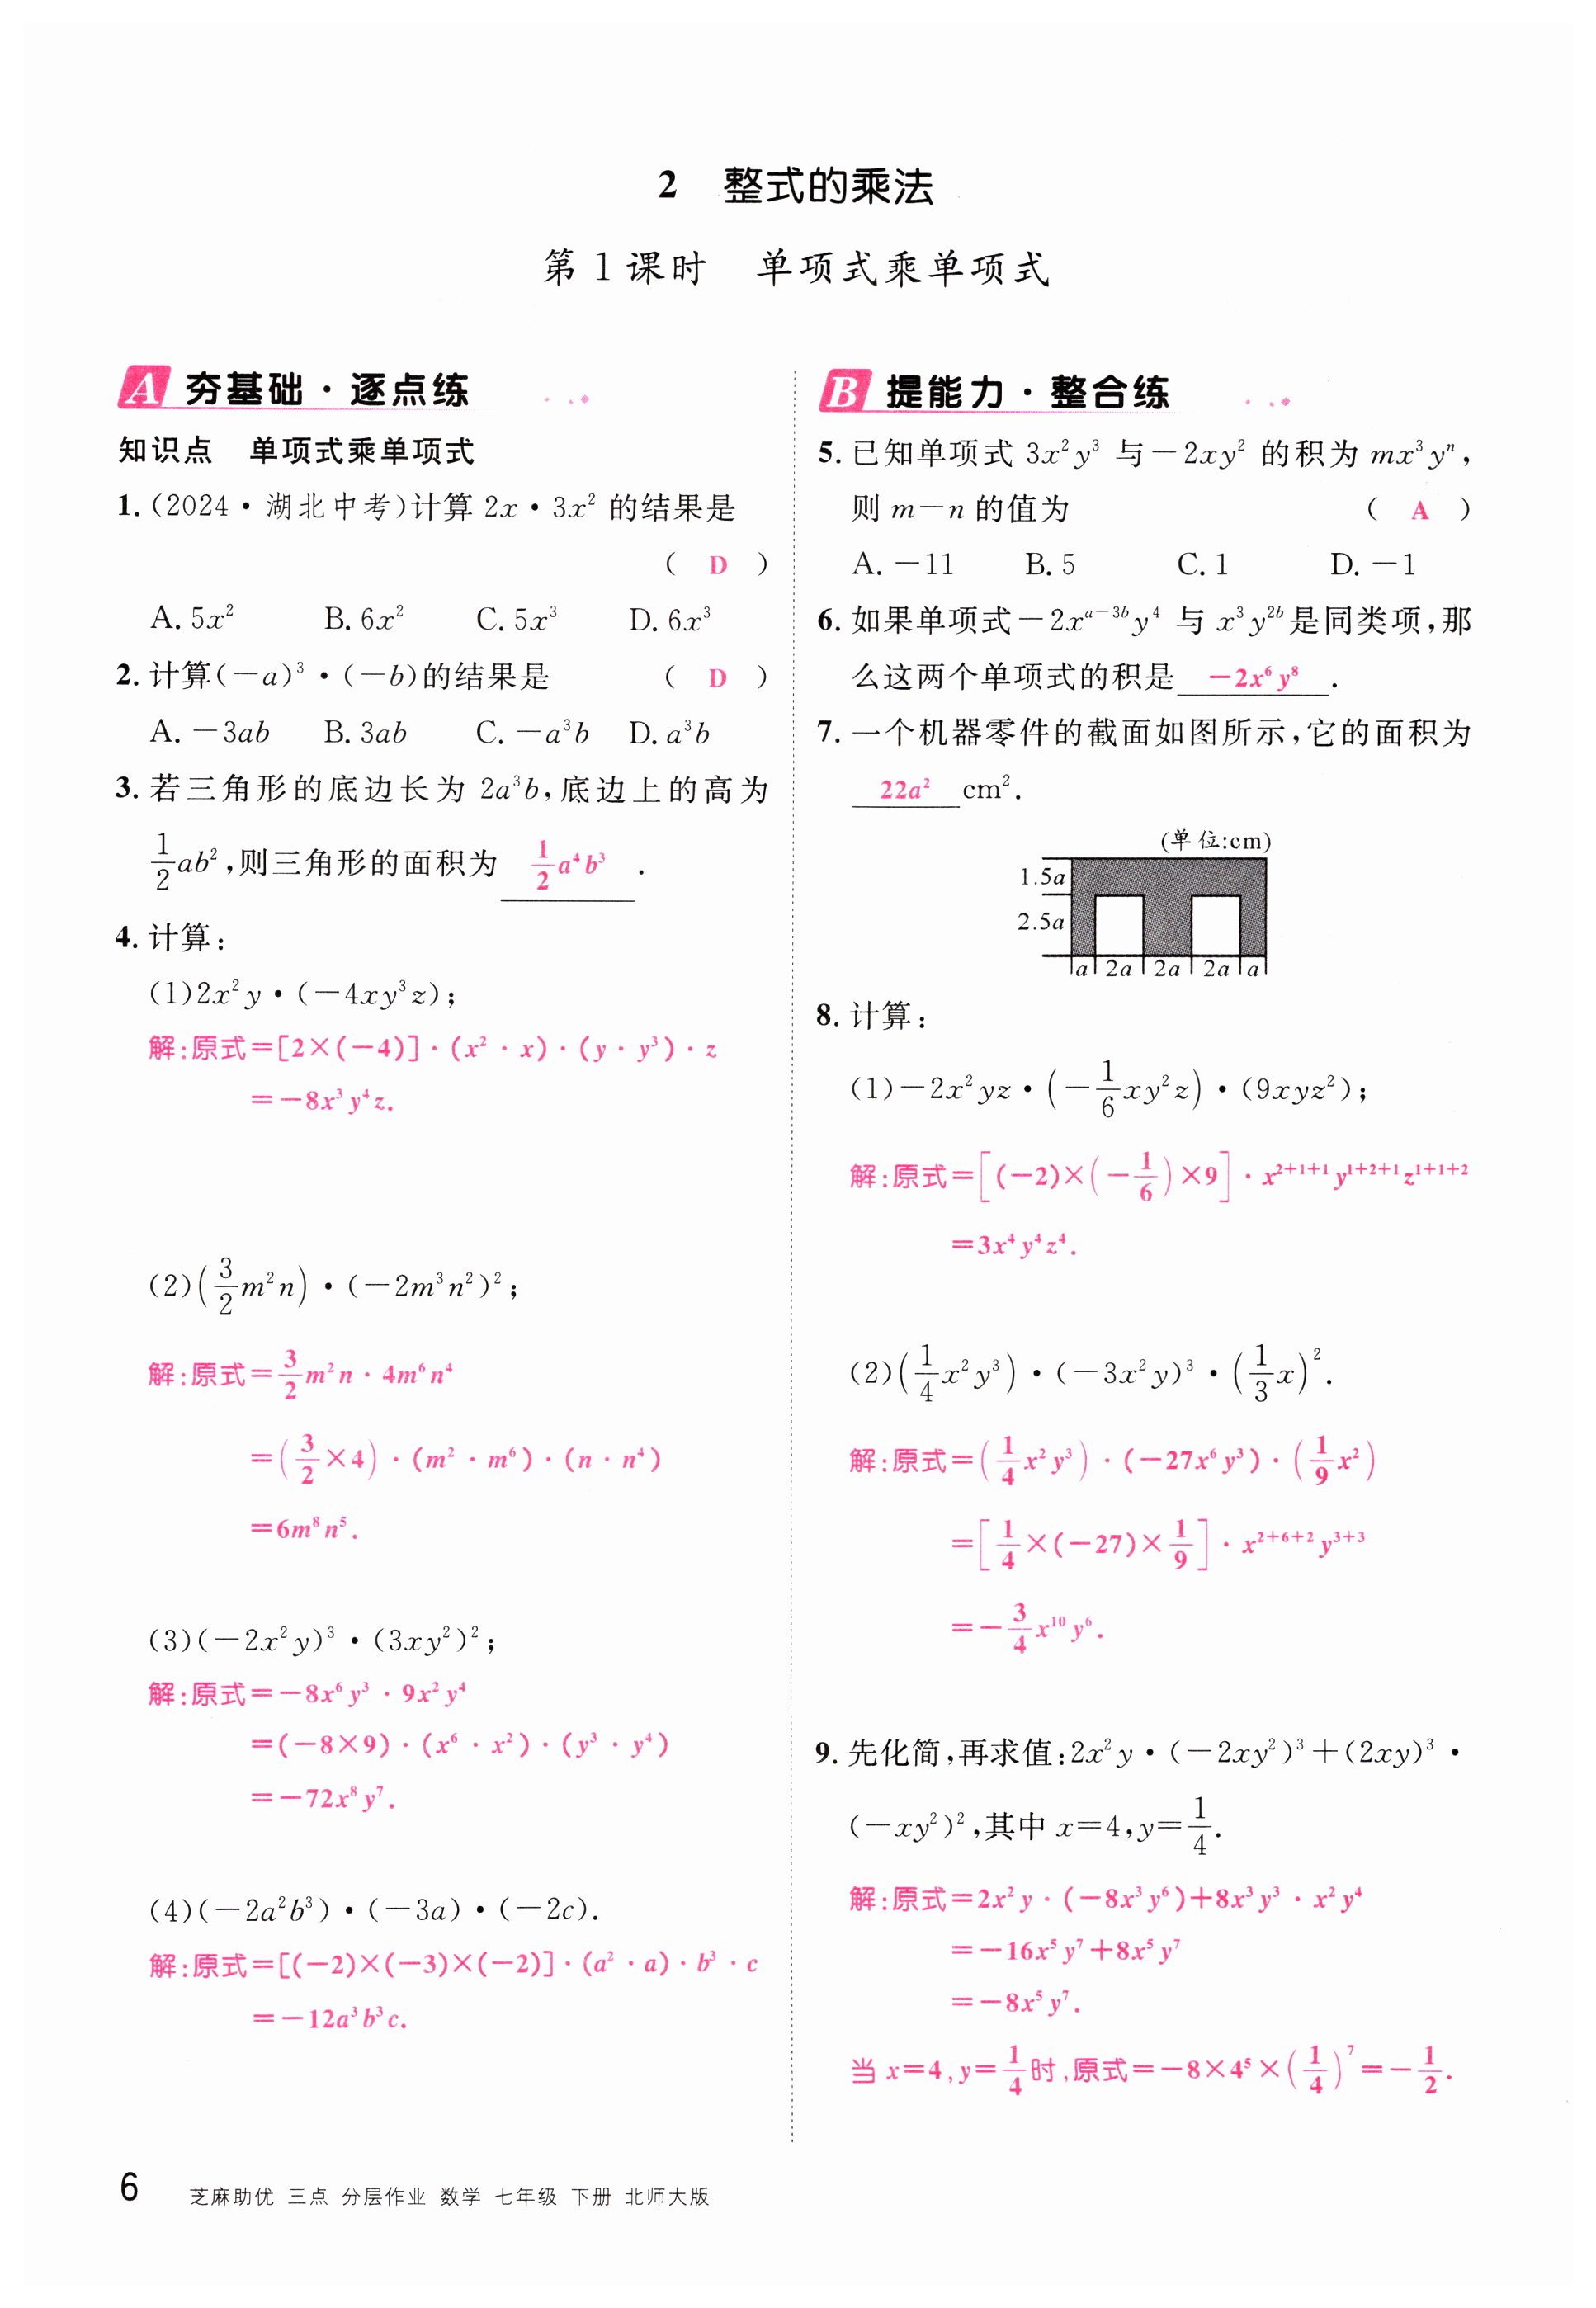 2 整式的乘法
第1课时 单项式乘单项式
A 夯基础·逐点练
知识点 单项式乘单项式
1.(2024·湖北中考)计算 2x·3x² 的结果是
( D )
A. 5x² B. 6x² C. 5x³ D. 6x³
2. 计算(-a)³·(-b)的结果是 ( D )
A. -3ab B. 3ab C. -a³b D. a³b
3. 若三角形的底边长为 2a³b,底边上的高为
1/2 ab²,则三角形的面积为 1/2 a⁴b³ .
4. 计算:
(1)2x²y·(-4xy³z);
解:原式=[2×(-4)]·(x²·x)·(y·y³)·z
=-8x³y⁴z.
(2)(3/2 m²n)·(-2m³n²)²;
解:原式=3/2 m²n·4m⁶n⁴
=(3/2×4)·(m²·m⁶)·(n·n⁴)
=6m⁸n⁵.
(3)(-2x²y)³·(3xy²)²;
解:原式=-8x⁶y³·9x²y⁴
=(-8×9)·(x⁶·x²)·(y³·y⁴)
=-72x⁸y⁷.
(4)(-2a²b³)·(-3a)·(-2c).
解:原式=[(-2)×(-3)×(-2)]·(a²·a)·b³·c
=-12a³b³c.
B 提能力·整合练
5. 已知单项式 3x²y³ 与-2xy² 的积为 mx³yⁿ,
则 m-n 的值为 ( A )
A. -11 B. 5 C. 1 D. -1
6. 如果单项式-2x^(a-3b)y⁴ 与 x³y^(2b)是同类项,那
么这两个单项式的积是 -2x⁶y⁸ .
7. 一个机器零件的截面如图所示,它的面积为
22a² cm².
(单位:cm)
1.5a
2.5a
a 2a 2a 2a a
8. 计算:
(1)-2x²yz·(-1/6 xy²z)·(9xyz²);
解:原式=[(-2)×(-1/6)×9]·x^(2+1+1)y^(1+2+1)z^(1+1+2)
=3x⁴y⁴z⁴.
(2)(1/4 x²y³)·(-3x²y)³·(1/3 x)².
解:原式=(1/4 x²y³)·(-27x⁶y³)·(1/9 x²)
=[1/4×(-27)×1/9]·x^(2+6+2)y^(3+3)
=-3/4 x¹⁰y⁶.
9. 先化简,再求值:2x²y·(-2xy²)³+(2xy)³·
(-xy²)²,其中 x=4,y=1/4.
解:原式=2x²y·(-8x³y⁶)+8x³y³·x²y⁴
=-16x⁵y⁷+8x⁵y⁷
=-8x⁵y⁷.
当 x=4,y=1/4时,原式=-8×4⁵×(1/4)⁷=-1/2.
6 芝麻助优 三点 分层作业 数学 七年级 下册 北师大版